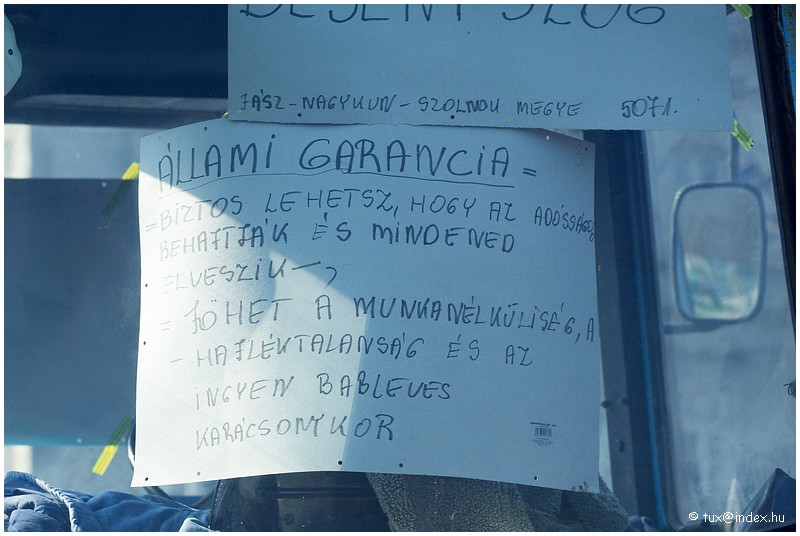 BESENYSZÖG
JÁSZ-NAGYKUN-SZOLNOK MEGYE 5071.
ÁLLAMI GARANCIA =
=BIZTOS LEHETSZ, HOGY AZ ADÓSSÁGOD
BEHAJTJÁK ÉS MINDENED
ELVESZIK
= JÖHET A MUNKANÉLKÜLISÉG, A
- HAJLÉKTALANSÁG ÉS AZ
INGYEN BABLEVES
KARÁCSONYKOR
© tux@index.hu